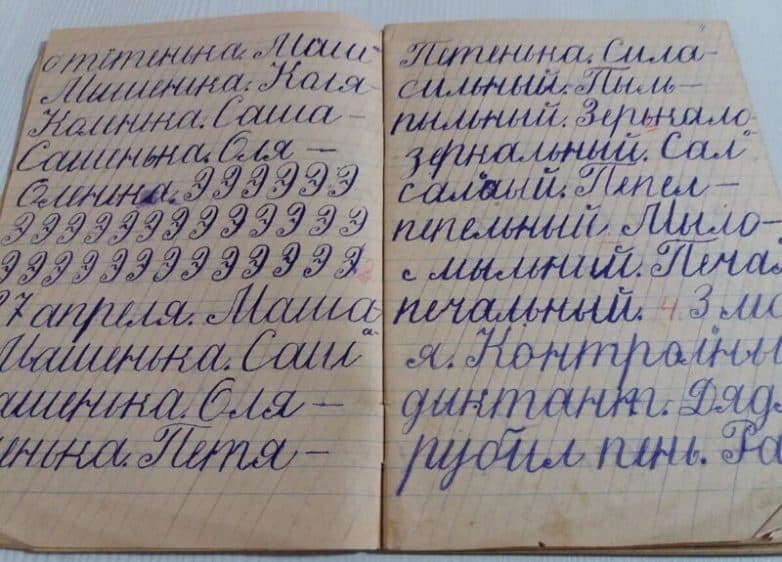 тётенька. Маша-
Машенька. Коля-
Коленька. Саша-
Сашенька. Оля —
Оленька. Э Э Э Э Э Э
Э Э Э Э Э Э Э Э Э Э Э Э
Э Э Э Э Э Э Э Э Э Э Э Э 2
27 апреля. Маша
Машенька. Саша-
ашенька. Оля —
енька. Петя —
Петенька. Сила-
сильный. Пыль-
пыльный. Зерькало-
зеркальный. Сал
сальный. Пепел-
пепельный Мыло-
с мыльний. Печал
печальный. 4 3 ма
я. Контролны
диктант. Дяд
рубил пень. Ра